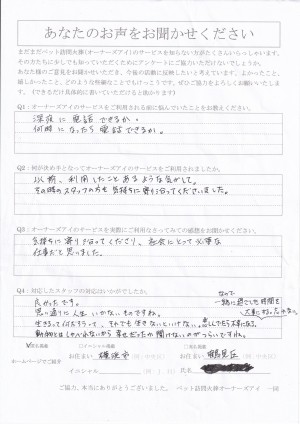 あなたのお声をお聞かせください
まだまだペット訪問火葬（オーナーズアイ）のサービスを知らない方がたくさんいらっしゃいます。
その方たちに少しでも知っていただくためにアンケートにご協力いただけないでしょうか。
あなた様のご意見をお聞かせいただき、今後の活動に反映したいと考えています。よかったこと、
嬉しかったこと、どのような些細なことでもけっこうです。ぜひご協力をよろしくお願いいたします。
（できるだけ具体的に書いていただけると助かります）
Q1：オーナーズアイのサービスをご利用される前に悩んでいたことをお教えください。
深夜に電話できるか。
何時になったら電話できるか。
Q2：何が決め手となってオーナーズアイのサービスをご利用されましたか。
以前、利用したことあるような気がして。
その時のスタッフの方も気持ちに寄り添ってくださいました。
Q3：オーナーズアイのサービスを実際にご利用なさってみての感想をお聞かせください。
気持ちに寄り添ってくださり、社会にとって必要な
仕事だと思いました。
Q4：対応したスタッフの対応はいかがでしたか。
良かったです。
思い通りに人生いかないものですね。
なので
一緒に過ごした時間を
ホームページでご紹介
お住まい
お住まい 鶴見区
イニシャル
氏名
ご協力、本当にありがとうございました。 ペット訪問火葬オーナーズアイ 一同